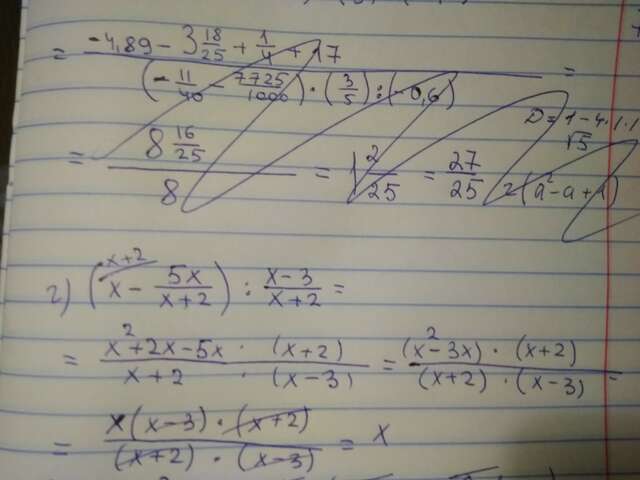 = (-4,89 - 3 18/25 + 1/4 + 17) / ((-11/40 - 7725/1000) · (3/5) : (-0,6)) =
D = 1 - 4·1·1
√5
= (8 16/25) / 8 = 1 2/25 = 27/25 2(a² - a + 1)
x+2
г) (x - 5x/(x+2)) : (x-3)/(x+2) =
= (x² + 2x - 5x · (x+2)) / (x+2 · (x-3)) = ((x² - 3x) · (x+2)) / ((x+2) · (x-3)) =
= (x(x-3) · (x+2)) / ((x+2) · (x-3)) = x